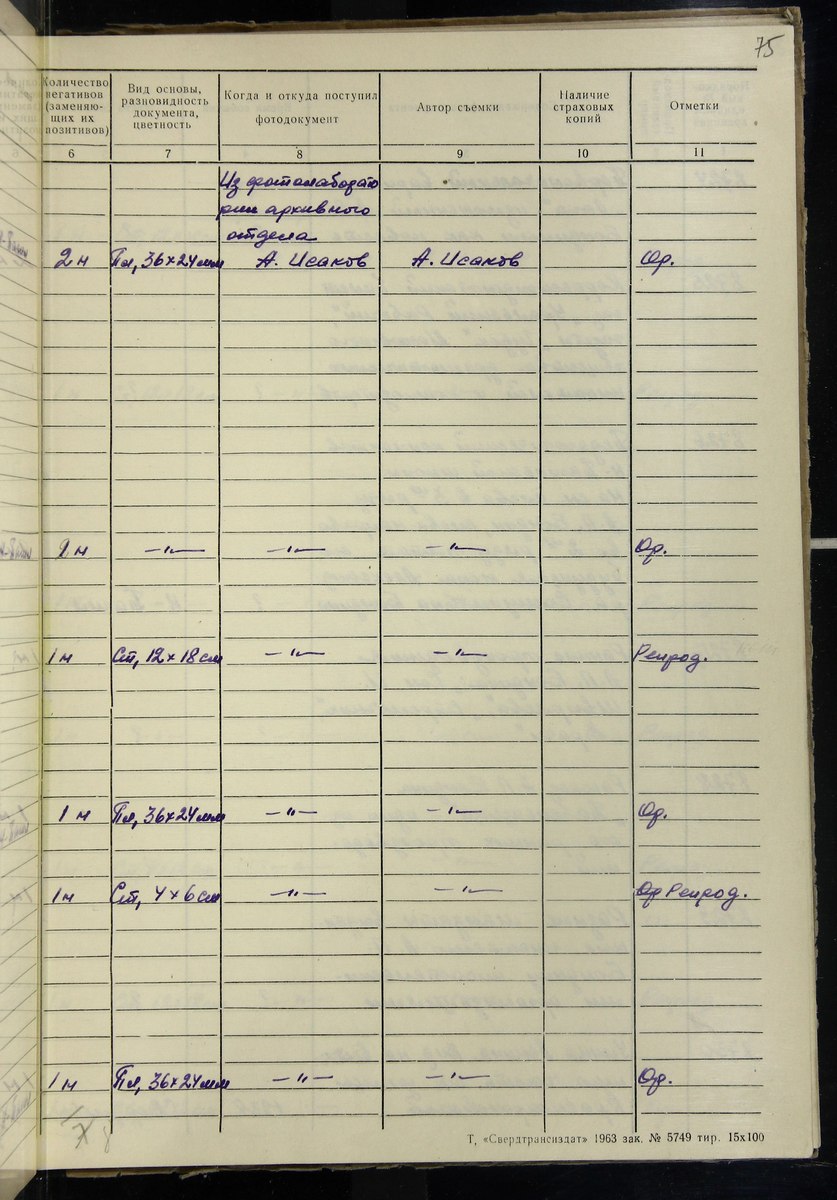 75
Количество негативов (заменяю- щих их позитивов) Вид основы, разновидность документа, цветность Когда и откуда поступил фотодокумент Автор съемки Наличие страховых копий Отметки
6 7 8 9 10 11
Из фотолаборато
рии архивного
отдела
2 н Пл, 36×24 мм А. Исаков А. Исаков Ор.
2 н —"— —"— —"— Ор.
1 н Ст, 12×18 см —"— —"— Репрод.
1 н Пл, 36×24 мм —"— —"— Ор.
1 н Ст, 4×6 см —"— —"— Ор Репрод.
1 н Пл, 36×24 мм —"— —"— Ор.
Т. «Свердтрансиздат» 1963 зак. № 5749 тир. 15х100